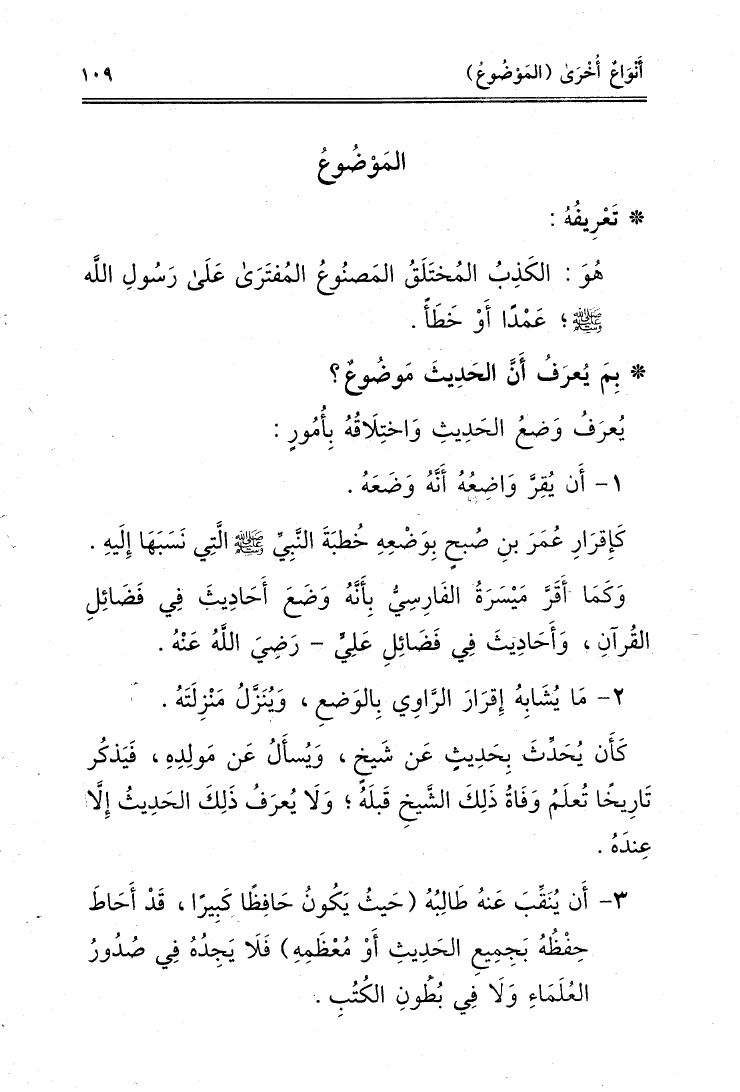 أَنْوَاعٌ أُخْرَىٰ (المَوْضُوعُ) ١٠٩
المَوْضُوعُ
* تَعْرِيفُهُ :
هُوَ : الكَذِبُ المُختَلَقُ المَصنُوعُ المُفتَرَىٰ عَلَىٰ رَسُولِ اللَّه
ﷺ ؛ عَمْدًا أَوْ خَطَأً .
* بِمَ يُعرَفُ أَنَّ الحَدِيثَ مَوضُوعٌ؟
يُعرَفُ وَضعُ الحَدِيثِ وَاختِلَاقُهُ بِأُمُورٍ :
١- أَن يُقِرَّ وَاضِعُهُ أَنَّهُ وَضَعَهُ .
كَإِقرَارِ عُمَرَ بنِ صُبحٍ بِوَضْعِهِ خُطبَةَ النَّبِيِّ ﷺ الَّتِي نَسَبَهَا إِلَيهِ .
وَكَمَا أَقَرَّ مَيْسَرَةُ الفَارِسِيُّ بِأَنَّهُ وَضَعَ أَحَادِيثَ فِي فَضَائِلِ
القُرآنِ ، وَأَحَادِيثَ فِي فَضَائِلِ عَلِيٍّ - رَضِيَ اللَّهُ عَنْهُ .
٢- مَا يُشَابِهُ إِقرَارَ الرَّاوِي بِالوَضعِ ، وَيُنَزَّلُ مَنْزِلَتَهُ .
كَأَن يُحَدِّثَ بِحَدِيثٍ عَن شَيخٍ ، وَيُسأَلُ عَن مَولِدِهِ ، فَيَذكُر
تَارِيخًا تُعلَمُ وَفَاةُ ذَلِكَ الشَّيخِ قَبلَهُ ؛ وَلَا يُعرَفُ ذَلِكَ الحَدِيثُ إِلَّا
عِندَهُ .
٣- أَن يُنَقِّبَ عَنهُ طَالِبُهُ (حَيثُ يَكُونُ حَافِظًا كَبِيرًا ، قَدْ أَحَاطَ
حِفْظُهُ بَجَمِيعِ الحَدِيثِ أَوْ مُعْظَمِهِ) فَلَا يَجِدُهُ فِي صُدُورُ
العُلَمَاءِ وَلَا فِي بُطُونِ الكُتُبِ .